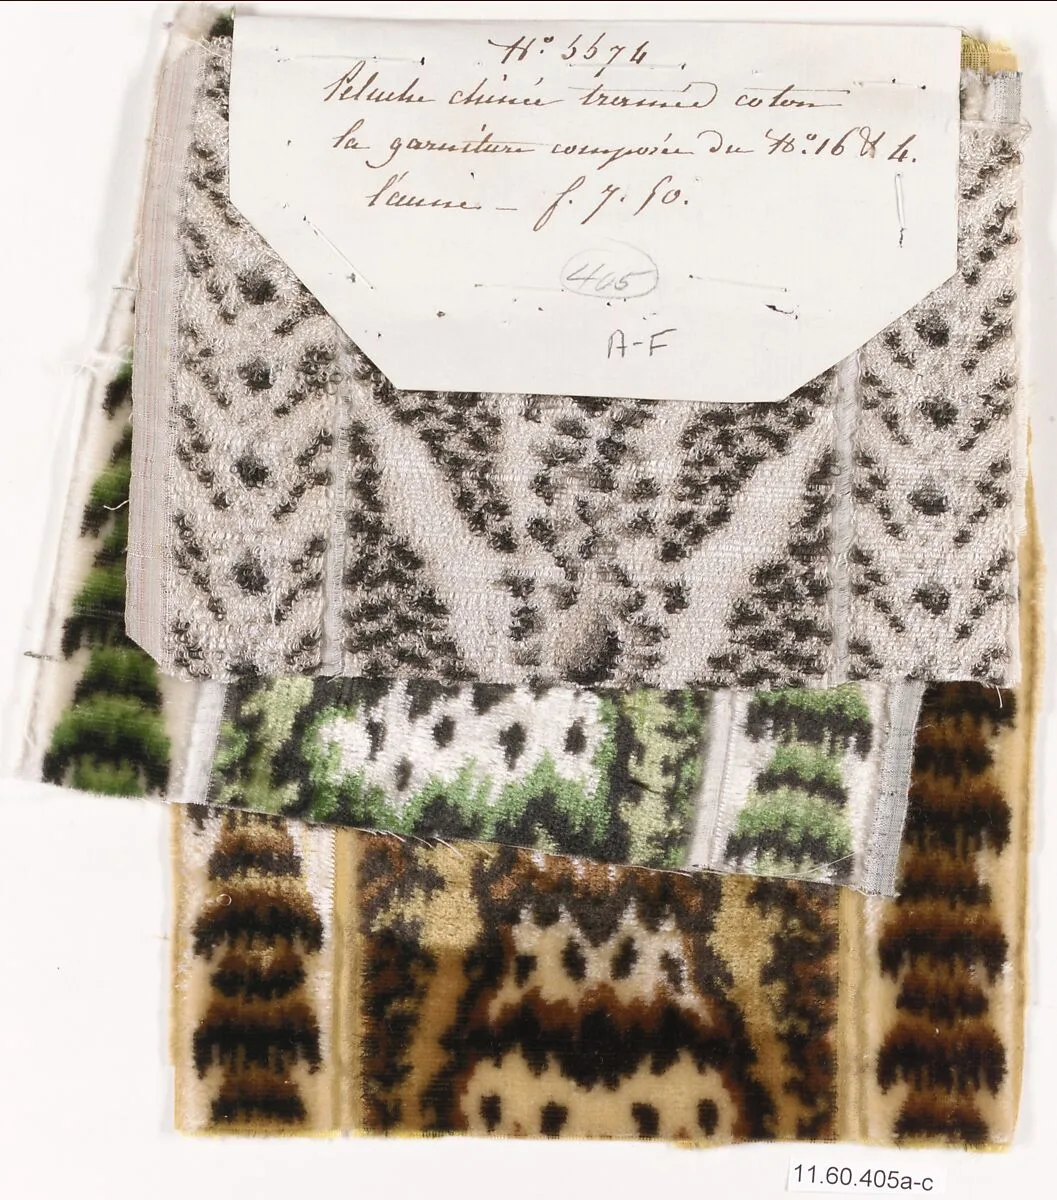 N.º 5574
Peluche chinée tramée coton
la garniture composée du N.º 16 & 4.
l'aune – f. 7. 50.
405
A-F
11.60.405a-c